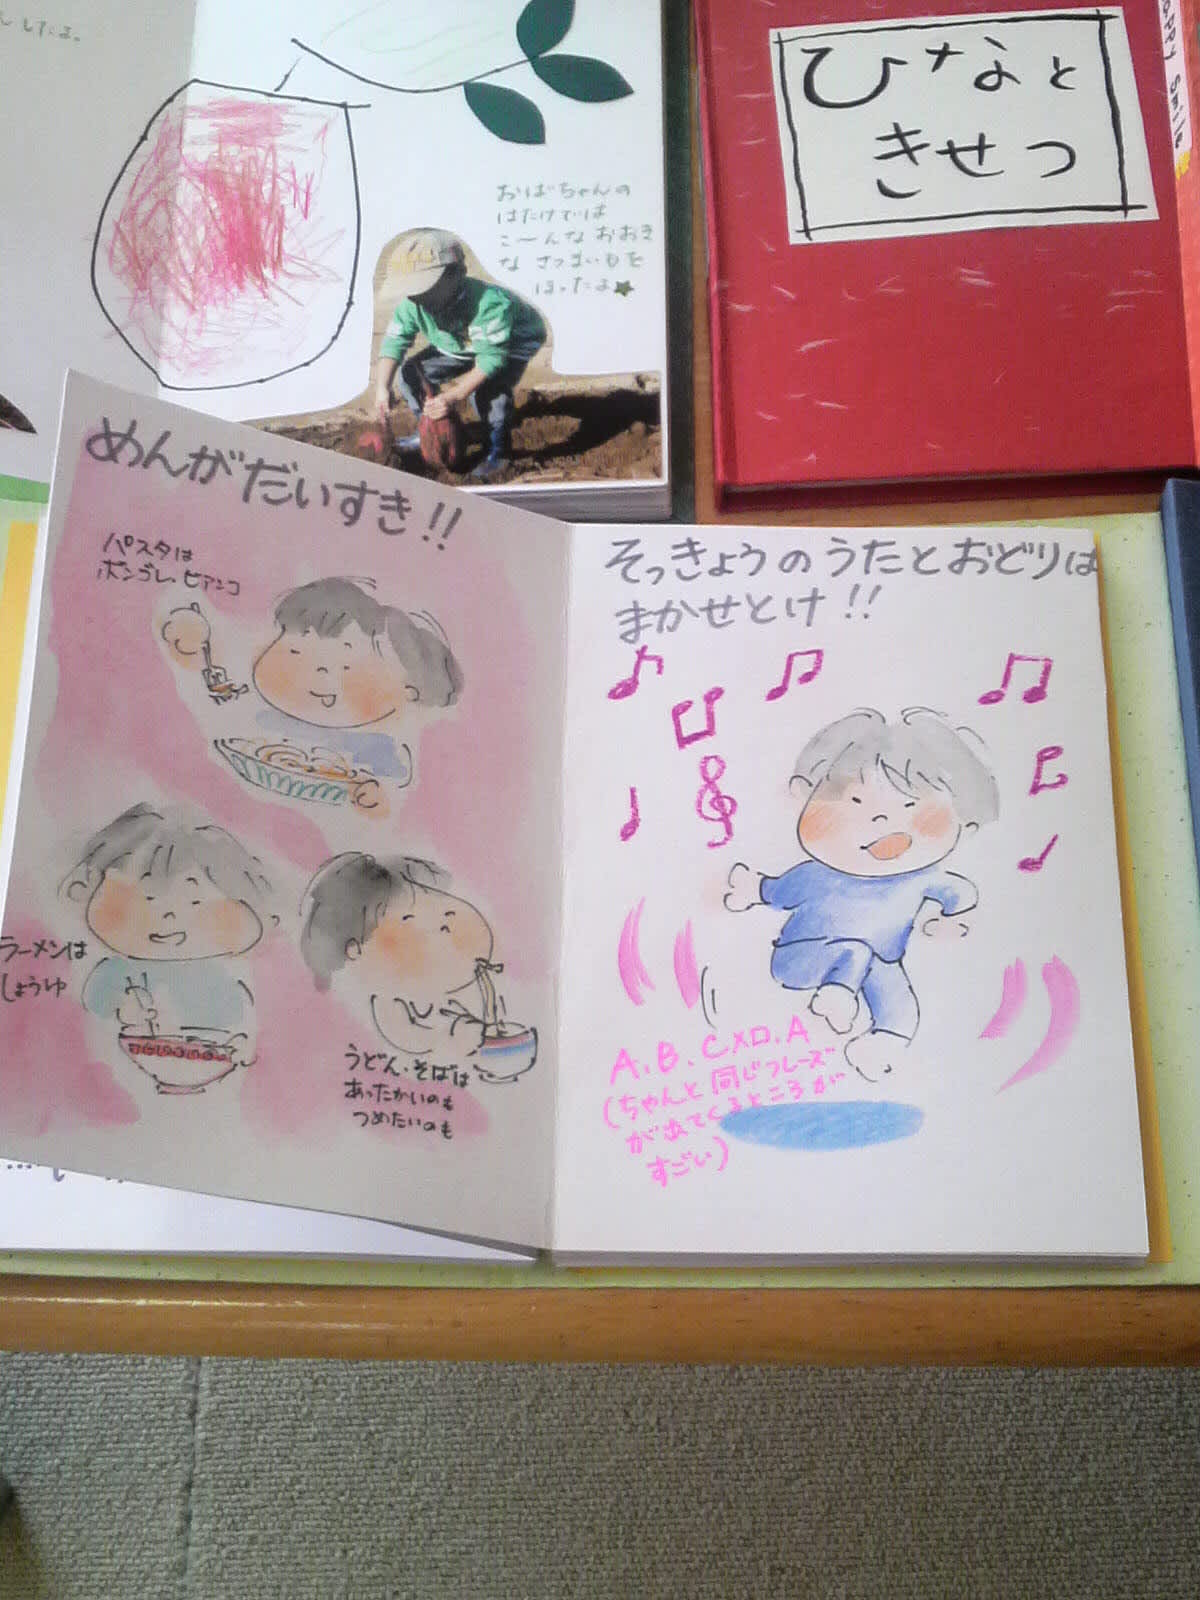 したよ。
おばちゃんの
はたけでは
こーんな おおき
な さつまいもを
ほったよ
ひなと
きせつ
Happy Smile
めんがだいすき!!
パスタは
ボンゴレ・ビアンコ
ラーメンは
しょうゆ
うどん・そばは
あったかいのも
つめたいのも
そっきょうのうたとおどりは
まかせとけ!!
A.B.Cメロ.A
(ちゃんと同じフレーズ
が出てくるところが
すごい)